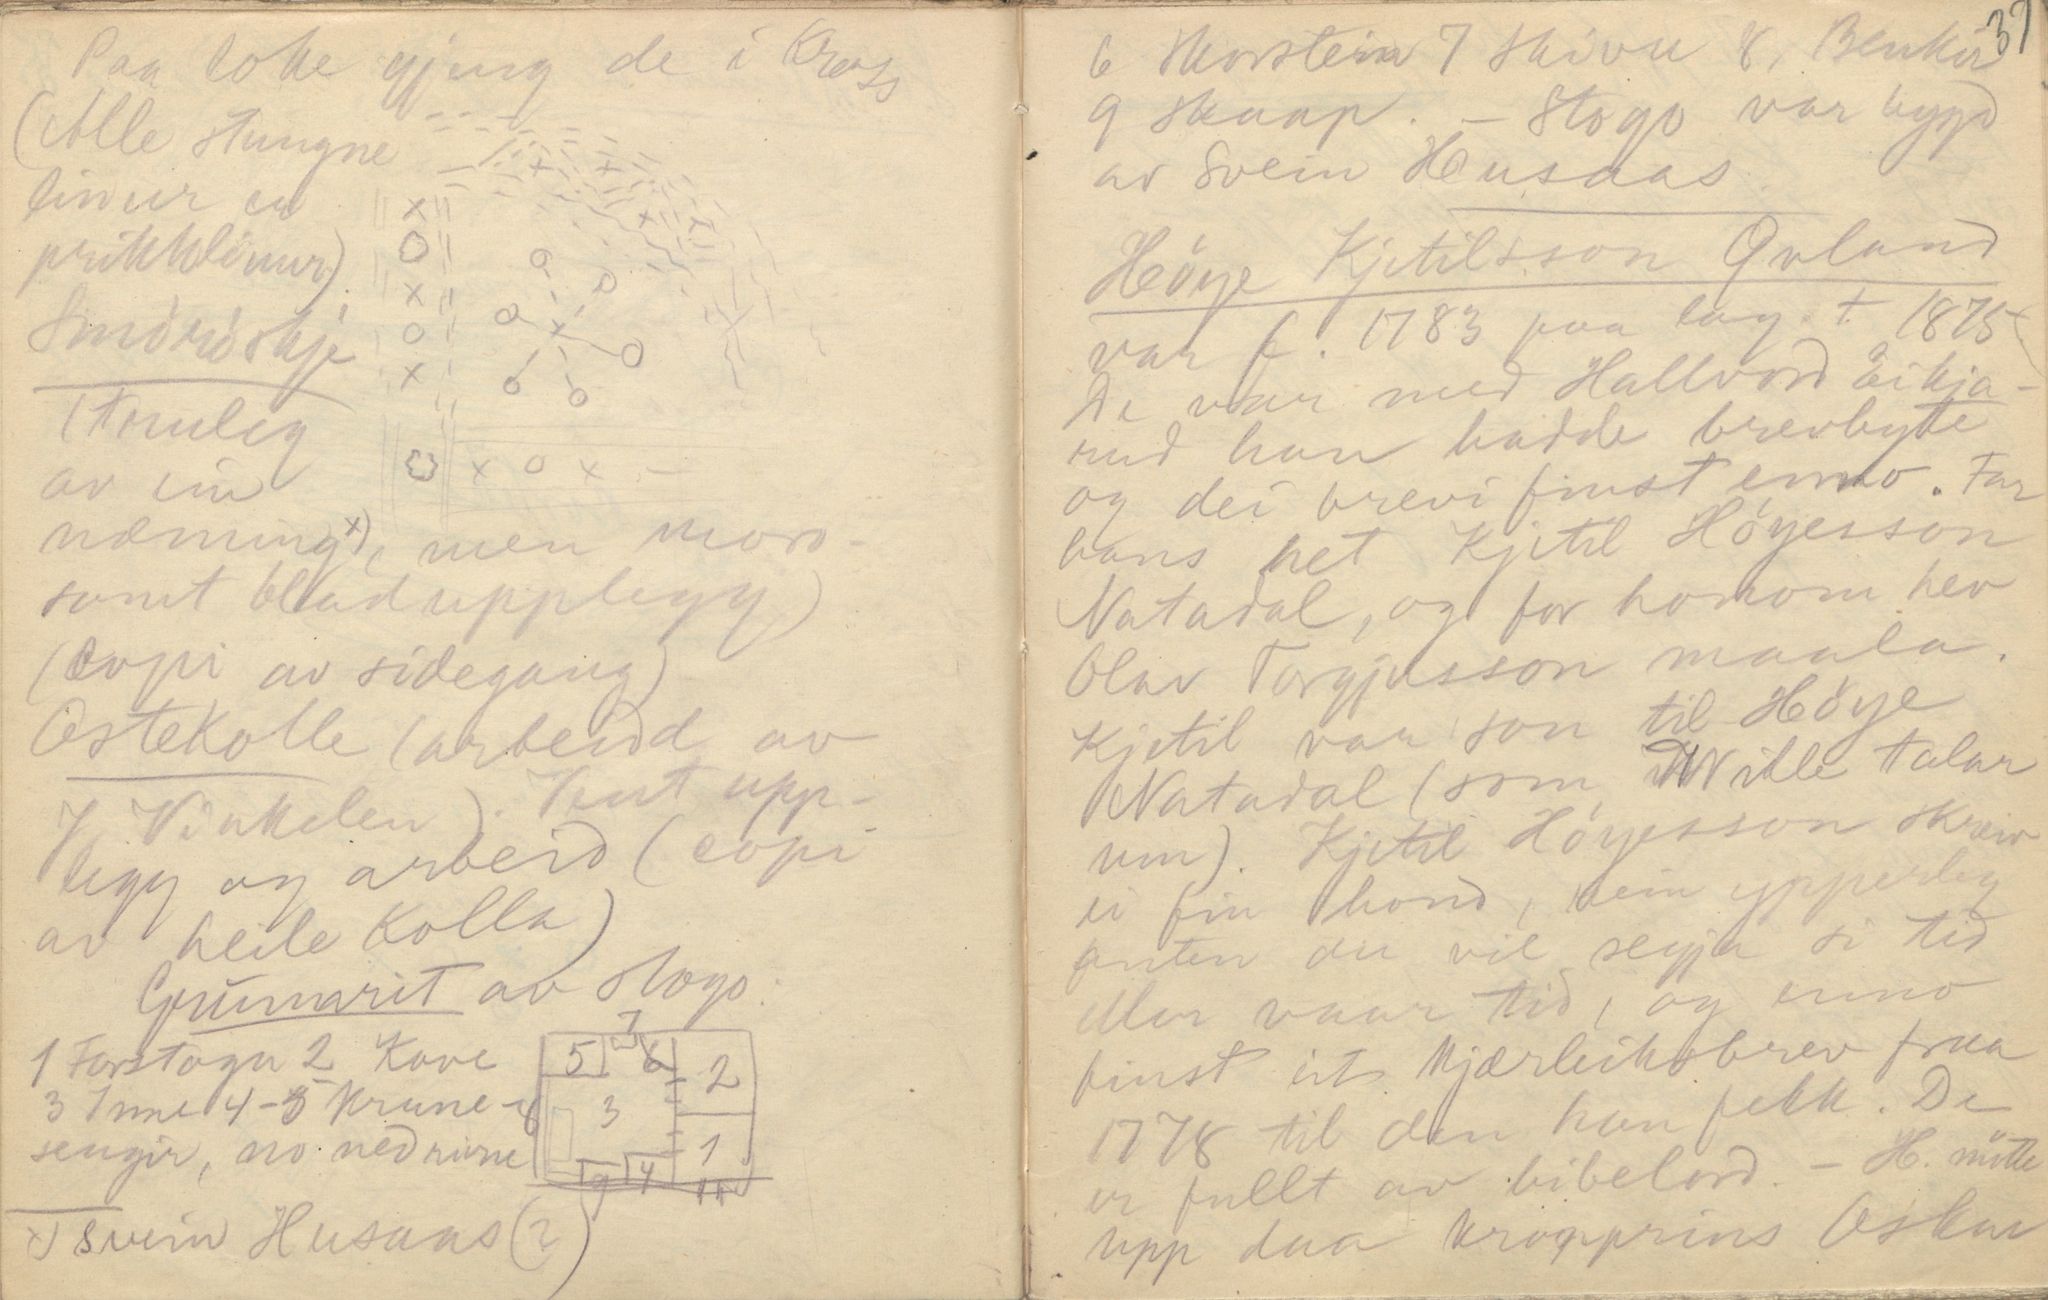 Paa loke gjeng de i Kross
(Alle stungne
linur er
prikklinur)
Smöröskje
(Truleg
av ein
næming x), men moro-
samt bladupplegg)
(Copi av sidegang)
Ostekolle (arbeidd av
J. Vinkelen). Fint upp-
legg og arbeid (copi
av heile Kolla)
Grunnrit av stogo:
1 Forstogu 2 Kove
3 Inne 4-5 Krune-
sengir, no nedrivne
7
5 6 2
3
1
9 4
x) Svein Husaas (?)
37
6 Skorstein 7 Skivu 8, Benkir
9 Skaap. – Stogo var bygd
av Svein Husaas.
Höye Kjetilsson Qvland
var f. 1783 paa lag. † 1875
De var med Hallvord Eikja-
rud han hadde brevbyte
og dei brevi finst enno. Far
hans het Kjetil Höyesson
Natadal, og for honom hev
Olav Torgjusson maala.
Kjetil var son til Höye
Natadal (som Wille talar
um). Kjetil Höyesson skreiv
ei fin hond, rein ypperleg
anten du vil segja si tid
ellar vaar tid, og enno
finst eit Kjærleiksbrev fraa
1778 til den han fekk. De
er fullt av bibelord. – H. mötte
upp daa kronprins Oskar